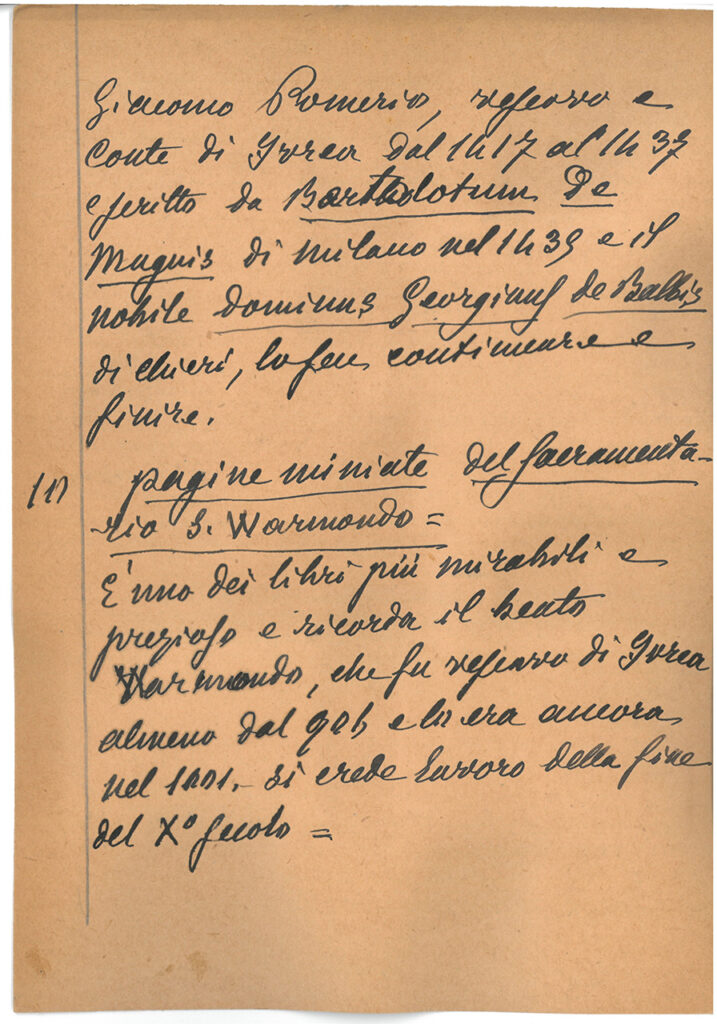 Giacomo Pomerio, vescovo e
Conte di Ivrea dal 1417 al 1437
e scritto da Bartholotum De
Magnis di milano nel 1439 e il
nobile dominus Georgius de Balbis
di chieri, lo feu continuare e
finire.
pagine miniate del Sacramenta-
rio S. Warmondo =
È uno dei libri più mirabili e
prezioso e ricorda il beato
Warmondo, che fu vescovo di Ivrea
almeno dal e lo era ancora
nel 1001. - Si crede lavoro della fine
del X° secolo =